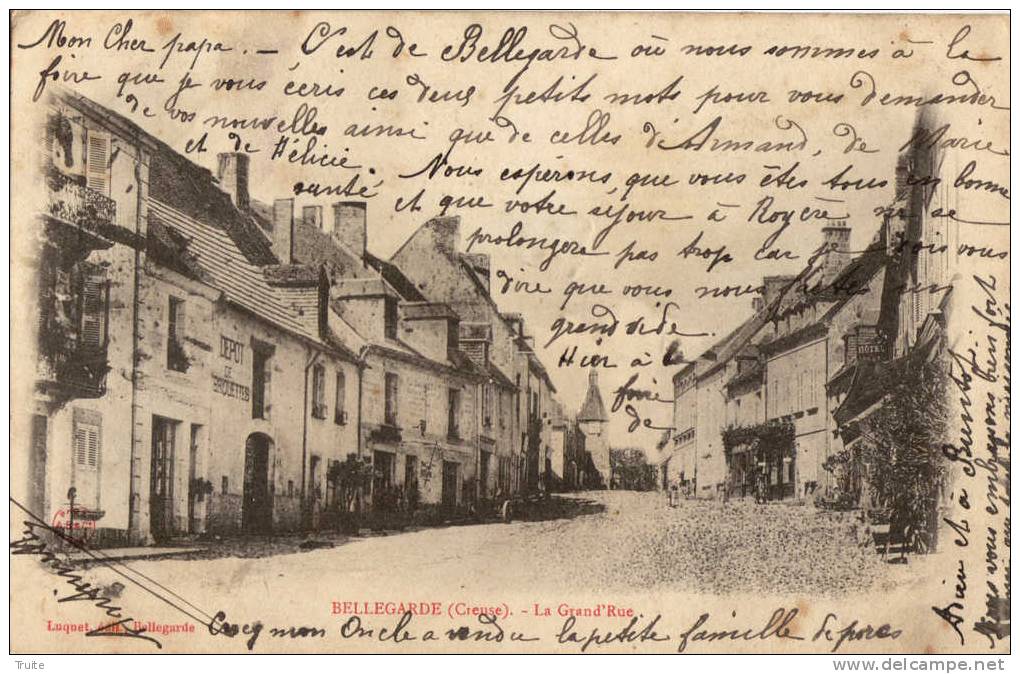 Mon Cher papa. — C'est de Bellegarde où nous sommes à la
foire que je vous écris ces deux petits mots pour vous demander
de vos nouvelles ainsi que de celles d'Armand, de Marie
et de Hélicie. Nous espérons, que vous êtes tous en bonne
santé et que votre séjour à Royère ne se
prolongera pas trop car je vois vous
dire que vous nous faites un
grand vide.
Hier à la
foire de
Crocq mon Oncle a vendu la petite famille de porcs
Adieu et à Bientôt.
Nous vous embrassons bien fort
DEPOT
DE
BRIQUETTES
HÔTEL
BELLEGARDE (Creuse). - La Grand'Rue
Luquet, édit., Bellegarde
Truite
www.delcampe.net